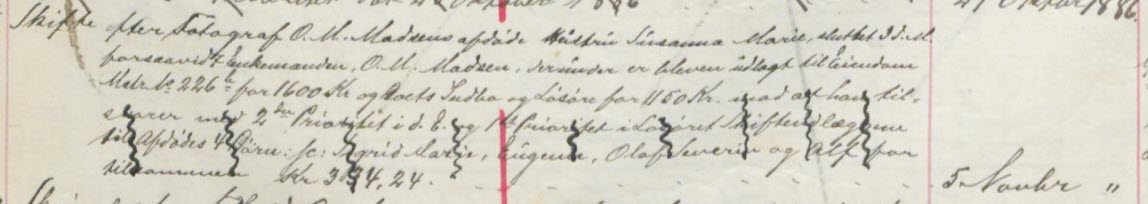 21 Oktbr 1886
Skifte efter Fotograf O. M. Madsens afdøde Hüstrü Süsanna Marie, slüttet 3 d. M.
forsaavidt Enkemanden, O. M. Madsen, deründer er bleven üdlagt til Eiendom
Matr. No 226 b for 1600 Kr og Boets Indbo og Løsøre for 1150 Kr. mod at han til-
svarer med 2den Prioritet i d. E. og 1ste Prioritet i Løsøret Skifteudlæggene
til Afdødes 4 Børn: sc: Sigrid Marie, Eügenie, Olaf Severin og Alf for
tilsammen Kr 394, 24.
5 Novbr "